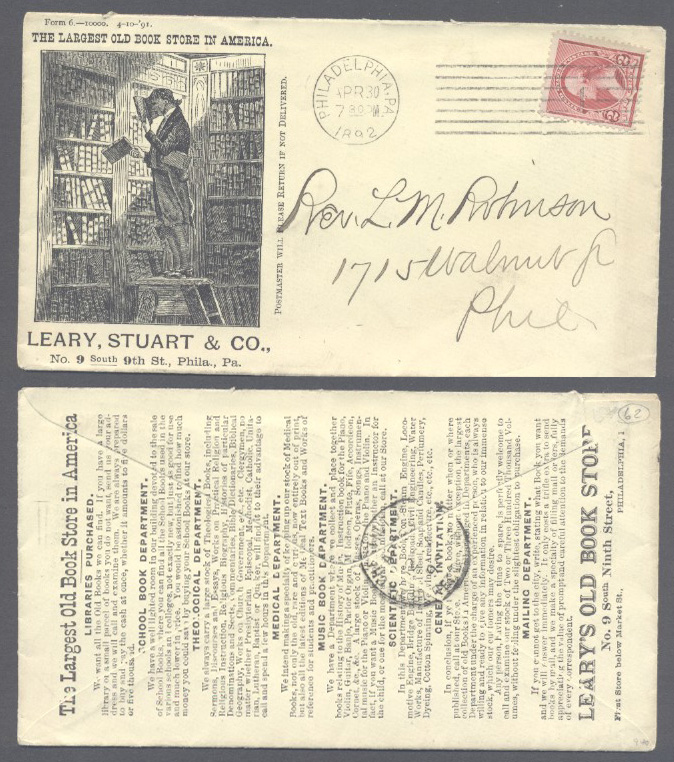 Form 6.—10000. 4-10-'91.
THE LARGEST OLD BOOK STORE IN AMERICA.
POSTMASTER WILL PLEASE RETURN IF NOT DELIVERED.
PHILADELPHIA, PA.
APR 30
1892
Rev. L. M. Robinson
1715 Walnut St
Phila
LEARY, STUART & CO.,
No. 9 South 9th St., Phila., Pa.
62
The Largest Old Book Store in America
LIBRARIES PURCHASED.
We want all the Old Books we can find. If you have a large
library or a small parcel of books you do not want, send us your ad-
dress and we will call and examine them. We are always prepared
to buy and pay the cash at once, whether it amounts to five dollars
or five thousand.
SCHOOL BOOK DEPARTMENT.
We have a well lighted room in our building devoted to the sale
of School Books, where you can find all the School Books used in the
various schools and colleges, not exactly new, but just as good for use
and much lower in price. You would be astonished to find how much
money you could save by buying your School Books at our store.
THEOLOGICAL DEPARTMENT.
We always carry a large stock of Theological Books, including
Sermons, Lectures and Essays. Works on Practical Religion and
Religious Instruction, Religious Biography, Histories of particular
Denominations and Sects, Commentaries, Bible Dictionaries, Biblical
Geography, Works on Church Government, etc., etc. Clergymen, no
matter whether Presbyterian, Episcopal, Methodist, Catholic, Unita-
rian, Lutheran, Baptist or Quaker, will find it to their advantage to
call and spend a few hours in this Department.
MEDICAL DEPARTMENT.
We intend making a specialty of keeping up our stock of Medical
Books, not only in rare and scarce works, now entirely out of print,
but also all the latest editions of Medical Text Books and Works of
reference for students and practitioners.
MUSIC BOOK DEPARTMENT.
We have a Department where we collect and place together
books relating to the History of Music, Instruction book for the Piano,
Violin, Guitar, Banjo, Parlor Organ, Melodeon, Fife, Accordeon,
Cornet, &c., &c. A large stock of Glees, Operas, Songs, Instrumen-
tal music for the Piano or the Violin, or the Piano and Violin. In
fact, if you want a Music Book, whether an Instructor for
the child, or one for the most proficient, call at our Store.
SCIENTIFIC DEPARTMENT.
In this Department we have Books on Steam Engine, Loco-
motive Engine, Mechanical and Civil Engineering, Water
Works, Bridge Building, Roofing, Metallurgy,
Manufacture of Soap, Candles, Perfumery,
Dyeing, Cotton Spinning, Architecture, etc., etc., etc.
GENERAL INVITATION.
In conclusion, if you want a book, no matter when or where
published, call at our Store. We have, without exception, the largest
collection of Old Books in America, all arranged in Departments, each
Department under the charge of an experienced person, who is always
willing and ready to give any information in relation to our immense
stock, which our customers may desire.
Any person having the time to spare, is perfectly welcome to
call and examine our stock of two or three hundred Thousand Vol-
umes, without feeling under the slightest obligation to purchase.
MAILING DEPARTMENT.
If you cannot get to the Store, write, stating what Book you want
and we will answer immediately. It only costs a trifle extra to send
books by mail, and we make a specialty of filling mail orders, fully
appreciating the value of prompt and careful attention to the demands
of every correspondent.
LEARY'S OLD BOOK STORE
No. 9 South Ninth Street,
First Store below Market St.
PHILADELPHIA,